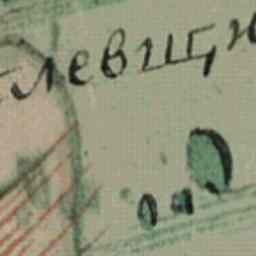 левщи